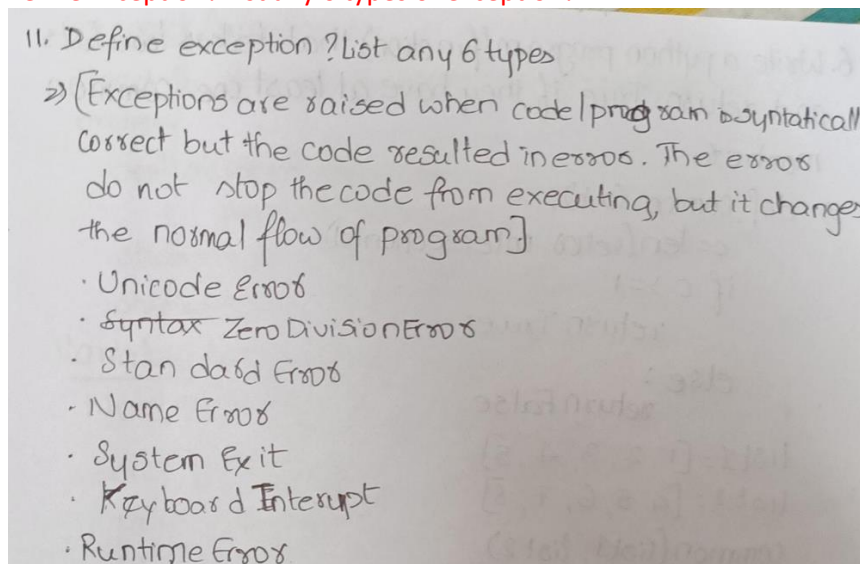 11. Define exception ? List any 6 types
2) [Exceptions are raised when code/program is syntaticall
correct but the code resulted in error. The error
do not stop the code from executing, but it changes
the normal flow of program]
· Unicode Error
· Syntax ZeroDivisionError
· Standard Error
· Name Error
· System Exit
· Keyboard Interupt
· Runtime Error